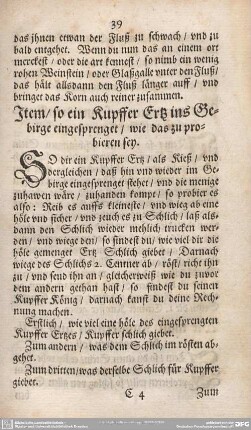 39
das jhnen etwan der Fluß zu schwach / vnd zu
bald entgehet. Wenn du nun das an einem ort
merckest / oder die art kennest / so nimb ein wenig
rohen Weinstein / oder Glaßgalle vnter den Fluß /
das hält alsdann den Fluß länger auff / vnd
bringet das Korn auch reiner zusammen.
Item / so ein Kupffer Ertz ins Ge-
birge eingesprenget / wie das zu pro-
bieren sey.
SO dir ein Kupffer Ertz / als Kieß / vnd
dergleichen / daß hin vnd wieder im Ge-
birge eingesprenget stehet / vnd die menige
zuhawen wäre / zuhanden kompt / so probier es
also: Reib es auffs kleineste / vnd wieg ab eine
höle vnd sicher / vnd zeuch es zu Schlich / laß als-
dann den Schlich wieder mehlich trucken wer-
den / vnd wiege den / so findest du / wie viel dir die
höle gemenget Ertz Schlich giebet / Darnach
wiege des Schlichs 2. Centner ab / röst / richt jhn
zu / vnd send jhn an / gleicherweiß wie du zuvor
dem andern gethan hast / so findest du seinen
Kupffer König / darnach kanst du deine Rech-
nung machen.
Erstlich / wie viel eine höle des eingesprengten
Kupffer Ertzes / Kupffer schlich giebet.
Zum andern / was dem Schlich im rösten ab-
gehet.
Zum dritten / was derselbe Schlich für Kupffer
giebet.
C 4 Zum